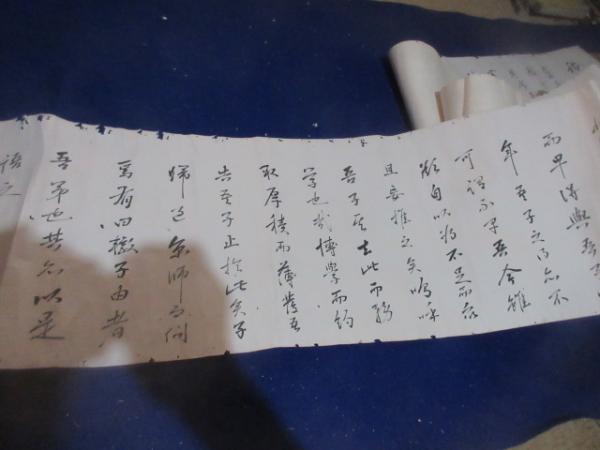 而早得與吾子
年吾子之得亦不
可謂不早吾今雖
欲自以為不足而眾
且妄推之矣嗚呼
吾子其去此而務
學也哉博學而約
取厚積而薄發吾
告吾子止於此矣子
歸過京師而問
焉有曰轍子由者
吾弟也其亦以是
語之